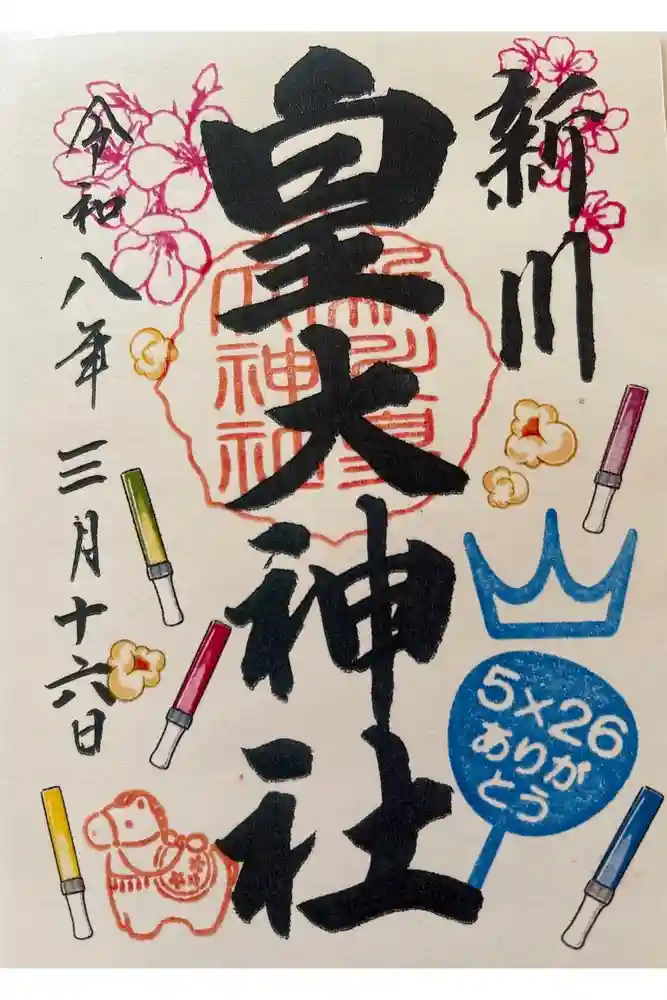 新川
皇大神社
新川皇
大神社
令和八年 三月十六日
5×26
ありが
とう